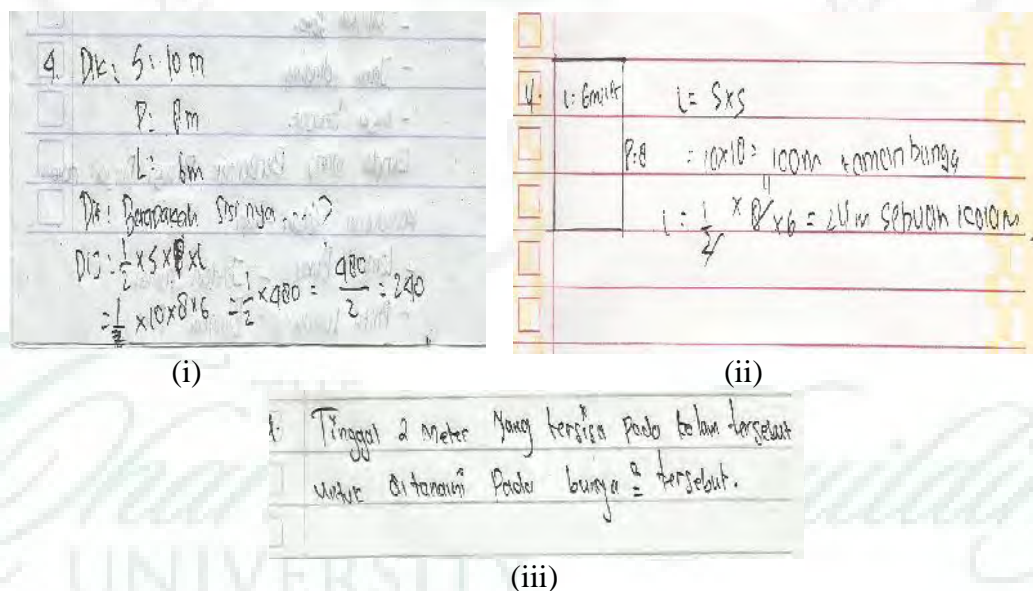 4. Dik: S: 10 m
P: 8m
L: 6m
Dit: Berapakah sisinya ....?
Dij: 1/2 x 5 x 8 x 6
= 1/2 x 10 x 8 x 6 = 1/2 x 480 = 480/2 = 240
(i)
4. L = S x S
P: 8 = 10 x 10 = 100m taman bunga
L = 1/2 x 8 x 6 = 24 m sebuah kolam
4
(ii)
4. Tinggal 2 meter yang tersisa pada kolam tersebut
untuk ditanami pada bunga = tersebut.
(iii)
THE
UNIVERSITY